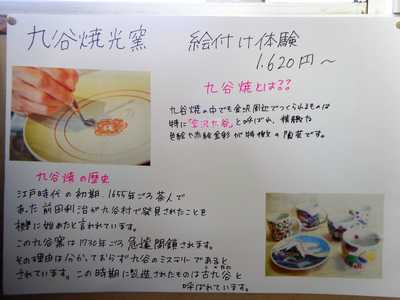 九谷焼光窯
絵付け体験
1.620円～
九谷焼とは??
九谷焼の中でも金沢周辺でつくられるものは
特に「金沢九谷」と呼ばれ、精緻な
色絵や赤絵金彩が特徴の陶芸です。
九谷焼の歴史
江戸時代の初期、1655年ごろ茶人で
あった前田利治が九谷村で発見されたことを
機に始めたと言われています。
この九谷窯は1730年ごろ急遽閉鎖されます。
その理由は分かっておらず九谷のミステリーであると
されています。この時期に製造されたものは古九谷と
呼ばれています。